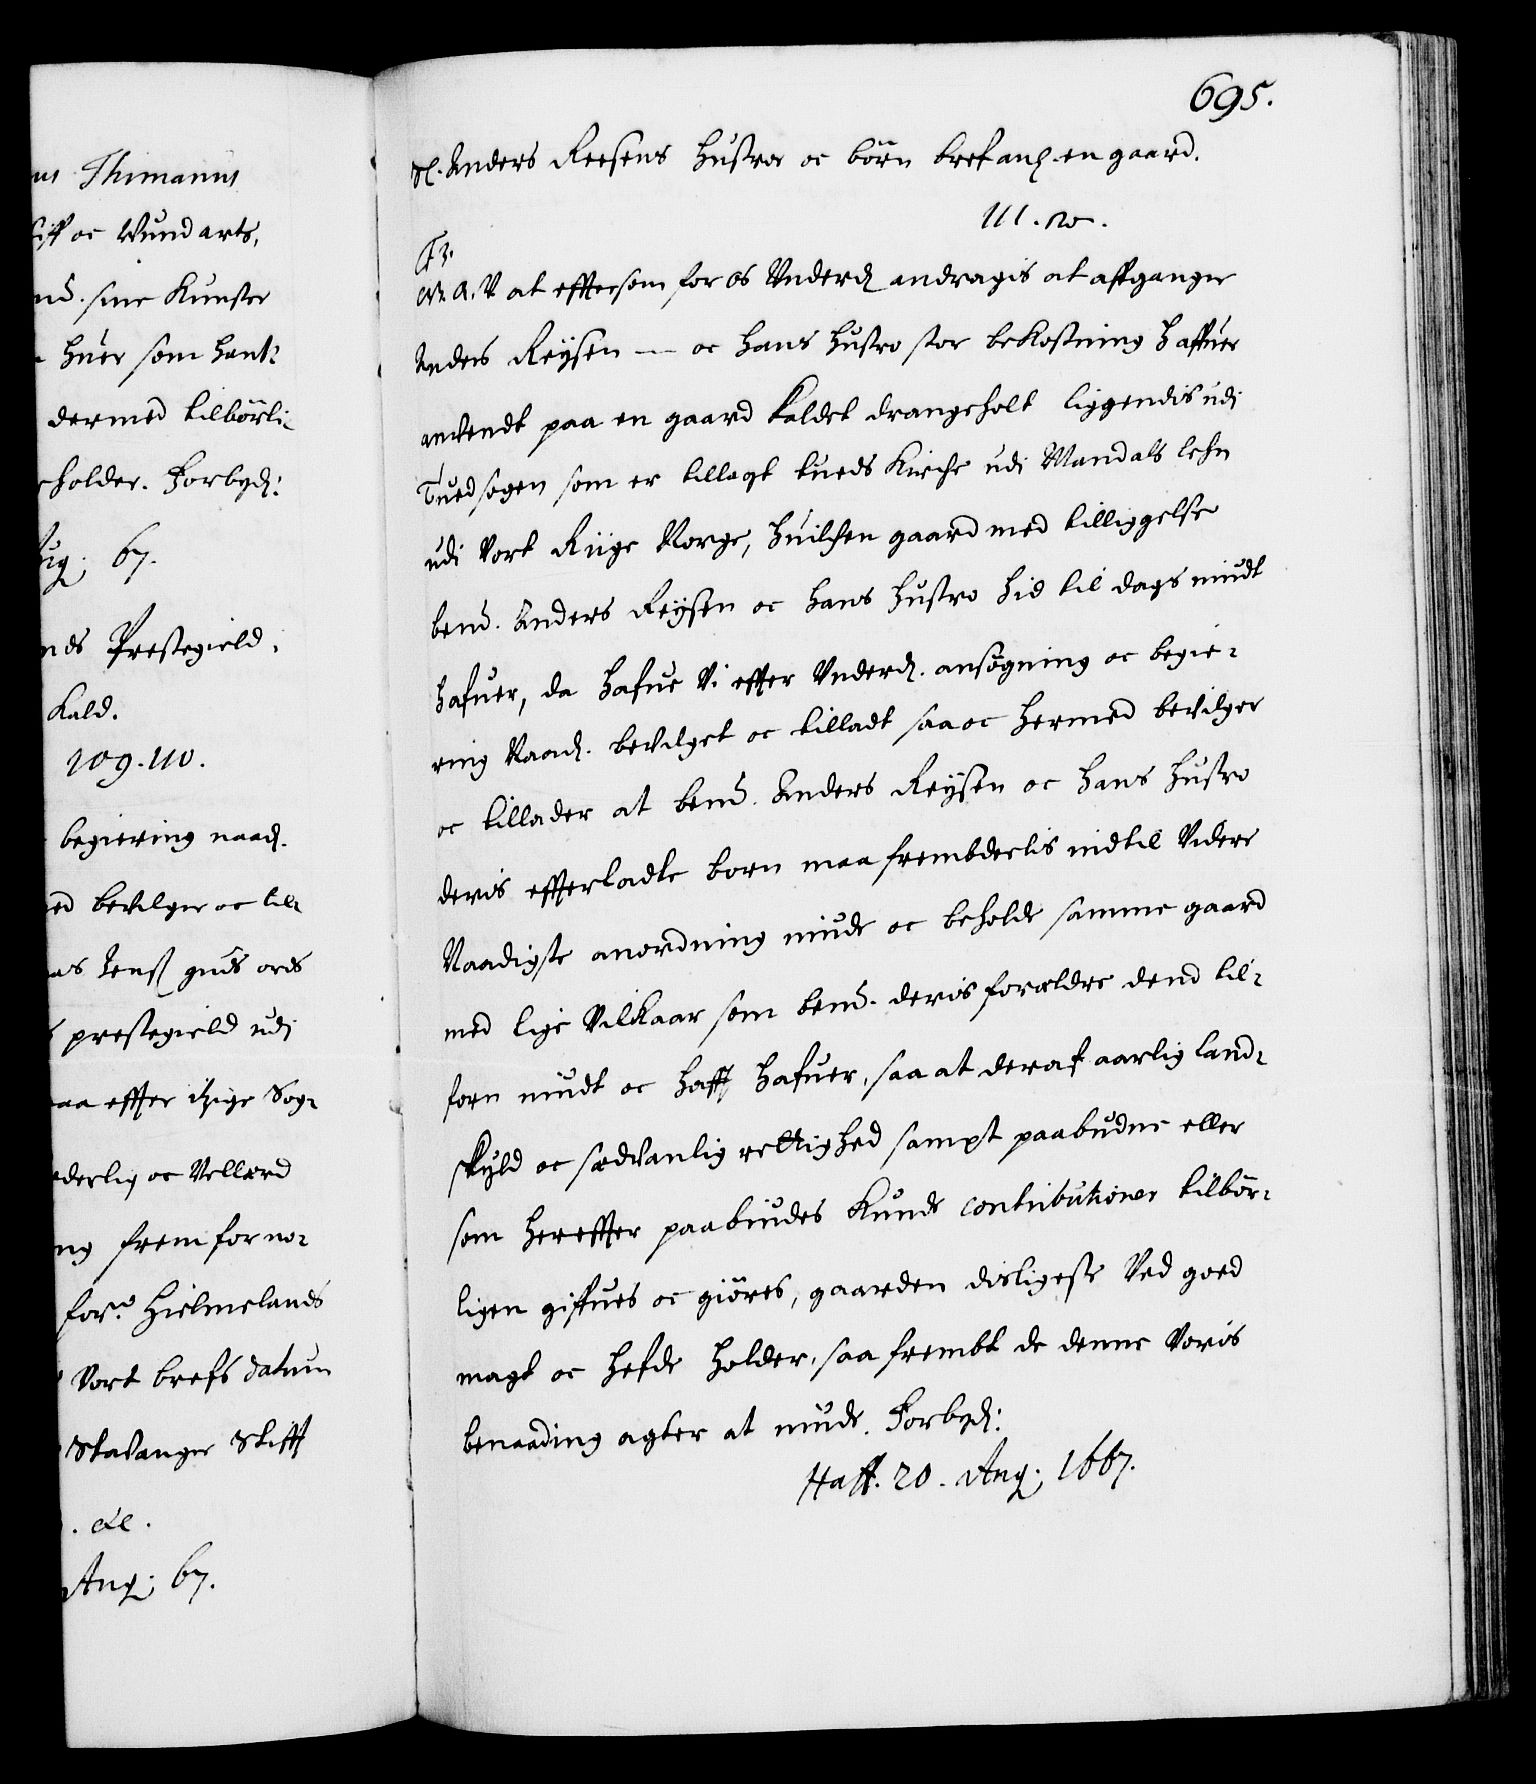 695.
Sl. Anders Reesens Hustroe oc börn bref anl. en gaard.
111. no.
F 3.
G. A. V. at efftersom for os Underd andragis at affgangne
Anders Reÿsen — oc hans hustro stor bekostning haffuer
anvendt paa en gaard kaldet drangeholt liggendis udi
Tued sogen som er tillagt tueds Kirche udi Mandals lehn
udi Vort Riige Norge, huilchen gaard med tilliggelse
bemd. Anders Reÿsen oc hans hustro hid til dags niudt
hafuer, da hafue Vi effter Underd. ansögning oc begie-
ring Naad. bevilget oc tilladt saa oc hermed bevilger
oc tillader at bemd. Anders Reÿsen oc hans hustro
deris effterladte born maa frembdeelis indtil Videre
Naadigste anordning niude oc beholde samme gaard
med lige Vilkaar som bemd. deris forældre dend til-
forn niudt oc hafft hafuer, saa at deraf aarlig land-
skyld oc sædvanlig rettighed sampt paabudne eller
som hereffter paabiudes kunde contributioner tilbör-
ligen giffues oc giöres, gaarden disligeste Ved goed
magt oc hefde holder, saa frembt de denne Voris
benaading agter at niude. Forbyd:
Haff. 20. Aug: 1667.
us Thimanus
siff oc Wund arts,
nd. sine Kunster
huer som hant-
dermed tilbörli-
holder. Forbyd:
Aug: 67.
nds Prestegield.
Kald.
109. 110.
begiering naad.
ed bevilger oc til-
as Jenss guds ords
prestegield udi
aa effter itzige Sog-
ederlig oc Vellærd
ng frem for no-
forn. Hielmelands
Vort brefs datum
Stavanger Stifft
. &c.
Aug: 67.